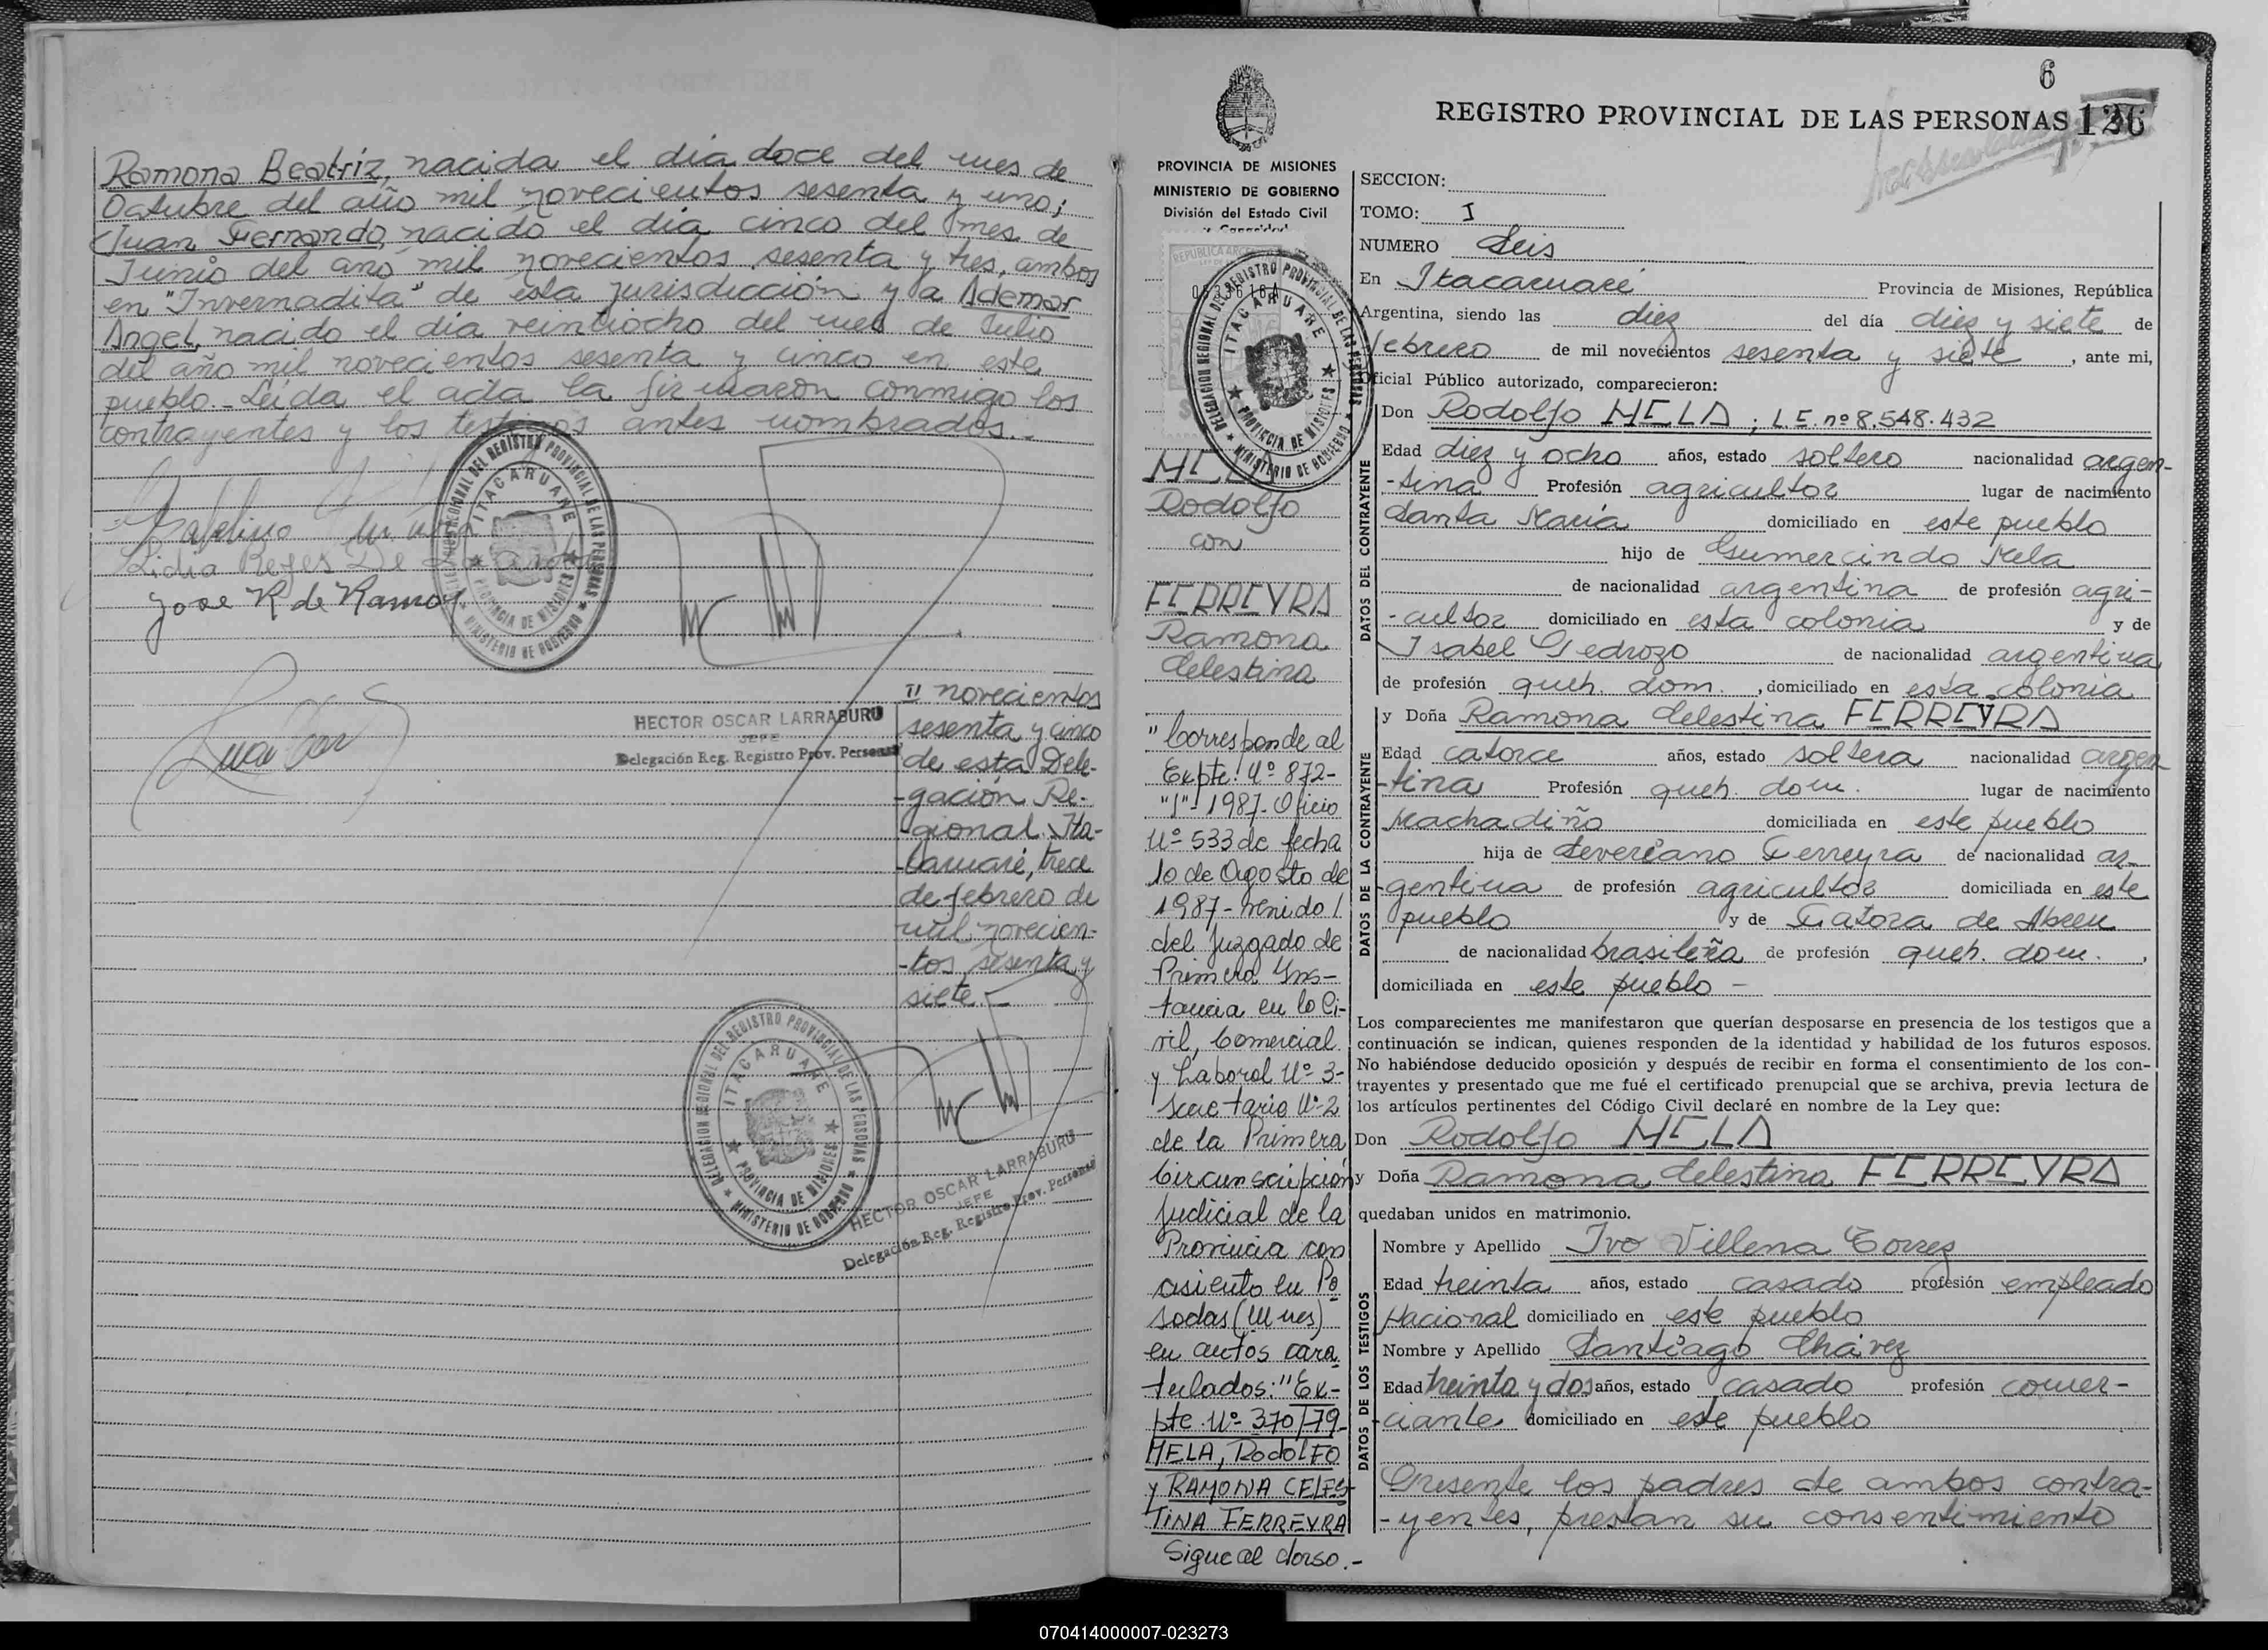 Ramona Beatriz, nacida el día doce del mes de
Octubre del año mil novecientos sesenta y uno;
Juan Fernando, nacido el día cinco del mes de
Junio del año mil novecientos sesenta y tres, ambos
en "Invernadita" de esta jurisdicción y a Ademar
Angel, nacido el día veintiocho del mes de Julio
del año mil novecientos sesenta y cinco en este
pueblo.- Leída el acta la firmaron conmigo los
contrayentes y los testigos antes nombrados.-
DELEGACION REGIONAL DEL REGISTRO PROVINCIAL DE LAS PERSONAS
ITACARUARE
PROVINCIA DE MISIONES
MINISTERIO DE GOBIERNO
Lidia Reyes De
Jose R de Ramos
HECTOR OSCAR LARRABURU
JEFE
Delegación Reg. Registro Prov. Personas
novecientos
sesenta y cinco
de esta Dele-
-gación Re-
-gional Ita-
-caruaré, trece
de febrero de
mil novecien-
-tos sesenta y
siete.-
DELEGACION REGIONAL DEL REGISTRO PROVINCIAL DE LAS PERSONAS
ITACARUARE
PROVINCIA DE MISIONES
MINISTERIO DE GOBIERNO
HECTOR OSCAR LARRABURU
JEFE
Delegación Reg. Registro Prov. Personas
6
REGISTRO PROVINCIAL DE LAS PERSONAS 126
PROVINCIA DE MISIONES
MINISTERIO DE GOBIERNO
División del Estado Civil
y Capacidad
REPUBLICA ARGENTINA
DELEGACION REGIONAL DEL REGISTRO PROVINCIAL DE LAS PERSONAS
ITACARUARE
PROVINCIA DE MISIONES
MINISTERIO DE GOBIERNO
MELA
Rodolfo
con
FERREYRA
Ramona
Celestina
"Corresponde al
Expte. Nº 872-
"J"- 1987- Oficio
Nº 533 de fecha
10 de Agosto de
1987- venido/
del Juzgado de
Primera Ins-
tancia en lo Ci-
vil, Comercial
y Laboral Nº 3-
Secretaria Nº 2
de la Primera
Circunscripción
Judicial de la
Provincia con
asiento en Po
sadas (Mnes)
en autos cara
tulados: "Ex-
pte. Nº 370/79
MELA, RODOLFO
y RAMONA CELES-
TINA FERREYRA
Sigue al dorso.-
SECCION:
TOMO: I
NUMERO Seis
En Itacaruaré Provincia de Misiones, República
Argentina, siendo las diez del día diez y siete de
febrero de mil novecientos sesenta y siete, ante mi,
Oficial Público autorizado, comparecieron:
DATOS DEL CONTRAYENTE
Don Rodolfo MELA; L.E. nº 8.548.432
Edad diez y ocho años, estado soltero nacionalidad argen-
-tina Profesión agricultor lugar de nacimiento
Santa María domiciliado en este pueblo
hijo de Gumercindo Mela
de nacionalidad argentina de profesión agri-
-cultor domiciliado en esta colonia y de
Isabel Pedrozo de nacionalidad argentina
de profesión queh. dom., domiciliado en esta colonia
DATOS DE LA CONTRAYENTE
y Doña Ramona Celestina FERREYRA
Edad catorce años, estado soltera nacionalidad argen-
-tina Profesión queh. dom. lugar de nacimiento
Machadiño domiciliada en este pueblo
hija de Severiano Ferreyra de nacionalidad ar-
-gentina de profesión agricultor domiciliada en este
pueblo y de Fatora de Abreu
de nacionalidad brasileña de profesión queh. dom.,
domiciliada en este pueblo -
Los comparecientes me manifestaron que querían desposarse en presencia de los testigos que a
continuación se indican, quienes responden de la identidad y habilidad de los futuros esposos.
No habiéndose deducido oposición y después de recibir en forma el consentimiento de los con-
trayentes y presentado que me fué el certificado prenupcial que se archiva, previa lectura de
los artículos pertinentes del Código Civil declaré en nombre de la Ley que:
Don Rodolfo MELA
y Doña Ramona Celestina FERREYRA
quedaban unidos en matrimonio.
DATOS DE LOS TESTIGOS
Nombre y Apellido Ivo Villena Torres
Edad treinta años, estado casado profesión empleado
Nacional domiciliado en este pueblo
Nombre y Apellido Santiago Chávez
Edad treinta y dos años, estado casado profesión comer-
-ciante domiciliado en este pueblo
Presente los padres de ambos contra-
-yentes, prestan su consentimiento
070414000007-023273